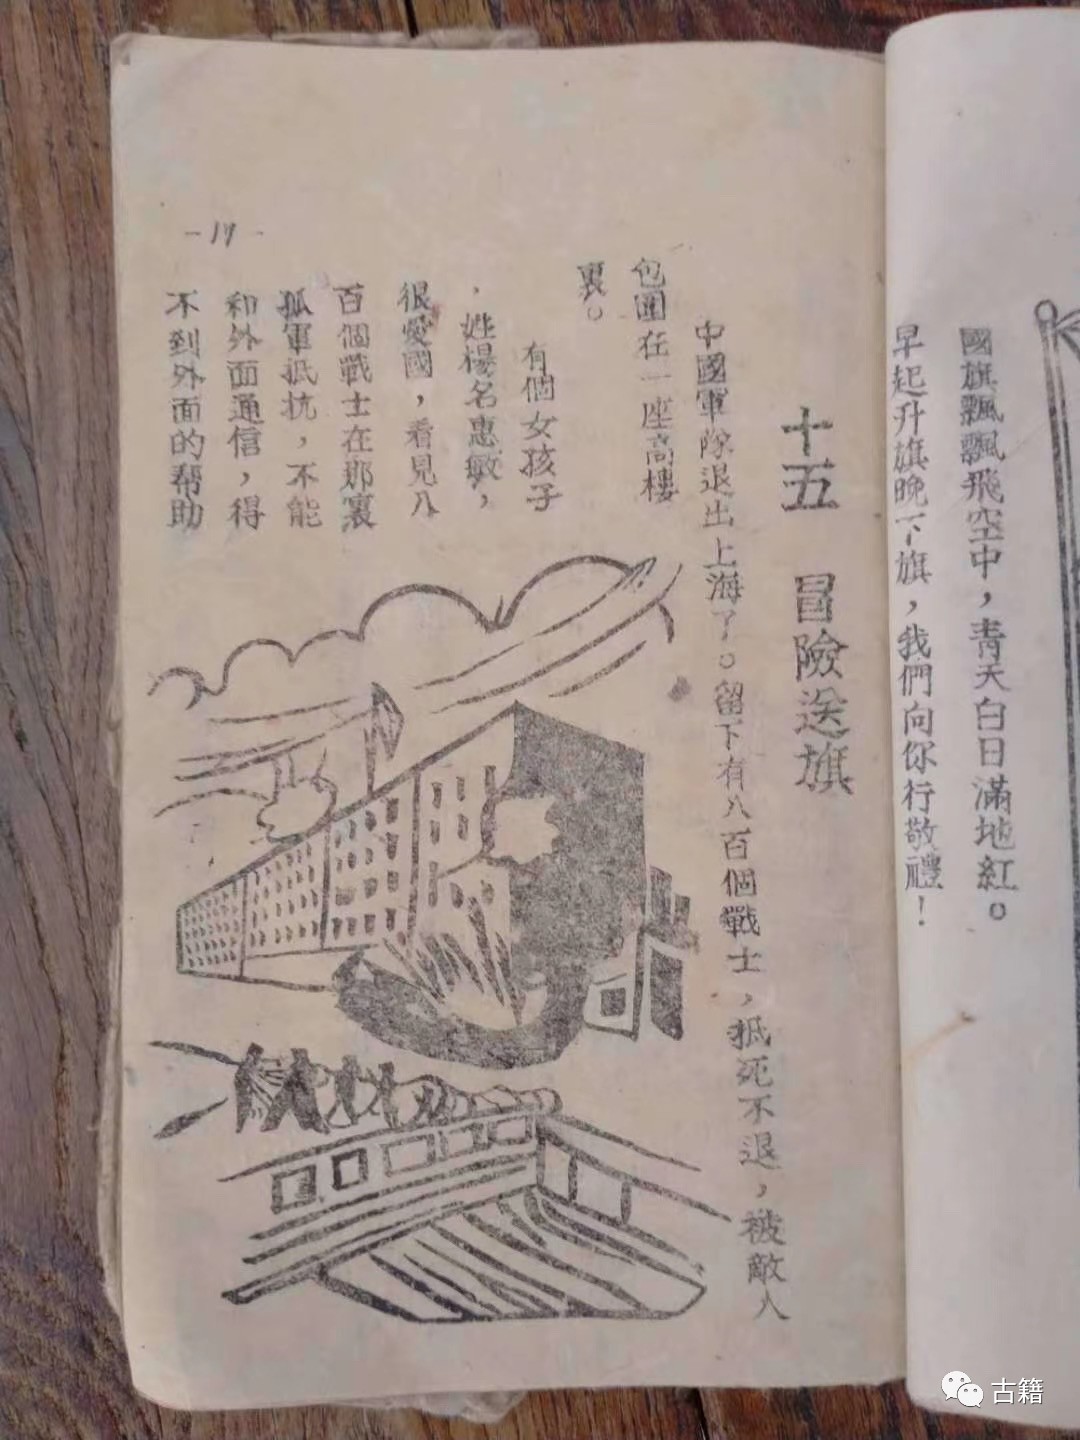 國旗飄飄飛空中，青天白日滿地紅。
早起升旗晚下旗，我們向你行敬禮！
十五　冒險送旗
中國軍隊退出上海了。留下有八百個戰士，抵死不退，被敵人
包圍在一座高樓
裏。
有個女孩子
，姓楊名惠敏，
很愛國，看見八
百個戰士在那裏
孤軍抵抗，不能
和外面通信，得
不到外面的帮助
-17-
古籍